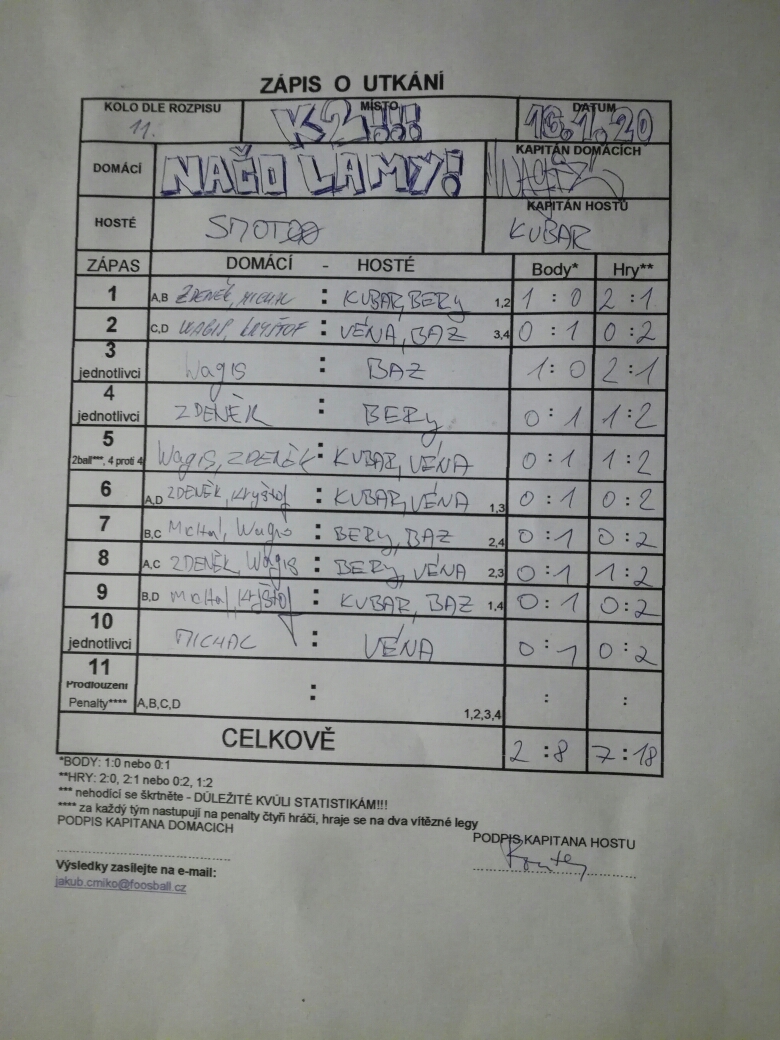 ZÁPIS O UTKÁNÍ
KOLO DLE ROZPISU MÍSTO DATUM
11. K2!!! 16.1.20
DOMÁCÍ NAČO LAMY! KAPITÁN DOMÁCÍCH
HOSTÉ KAPITÁN HOSTŮ
KUBAR
ZÁPAS DOMÁCÍ - HOSTÉ Body* Hry**
1 A,B ZDENĚK, MICHAL : KUBAR, BERY 1,2 1 : 0 2 : 1
2 C,D WAGIS, KRYŠTOF : VÉNA, BAZ 3,4 0 : 1 0 : 2
3 jednotlivci Wagis : BAZ 1 : 0 2 : 1
4 jednotlivci ZDENĚK : BERY 0 : 1 1 : 2
5 2ball***, 4 proti 4 Wagis, ZDENĚK : KUBAR, VÉNA 0 : 1 1 : 2
6 A,D ZDENĚK, Kryštof : KUBAR, VÉNA 1,3 0 : 1 0 : 2
7 B,C Michal, Wagis : BERY, BAZ 2,4 0 : 1 0 : 2
8 A,C ZDENĚK, Wagis : BERY, VÉNA 2,3 0 : 1 1 : 2
9 B,D Michal, Kryštof : KUBAR, BAZ 1,4 0 : 1 0 : 2
10 jednotlivci MICHAL : VÉNA 0 : 1 0 : 2
11 Prodloužení Penalty**** A,B,C,D : 1,2,3,4 : :
CELKOVĚ 2 : 8 7 : 18
*BODY: 1:0 nebo 0:1
**HRY: 2:0, 2:1 nebo 0:2, 1:2
*** nehodící se škrtněte - DŮLEŽITÉ KVŮLI STATISTIKÁM!!!
**** za každý tým nastupují na penalty čtyři hráči, hraje se na dva vítězné legy
PODPIS KAPITANA DOMACICH PODPIS KAPITANA HOSTU
Výsledky zasílejte na e-mail:
jakub.cmiko@foosball.cz